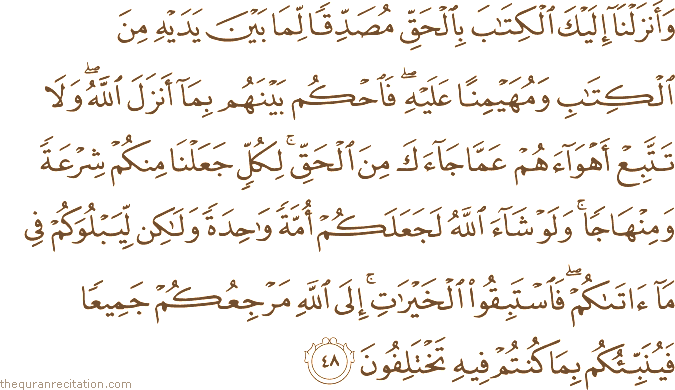 وَأَنزَلْنَآ إِلَيْكَ ٱلْكِتَٰبَ بِٱلْحَقِّ مُصَدِّقًا لِّمَا بَيْنَ يَدَيْهِ مِنَ
ٱلْكِتَٰبِ وَمُهَيْمِنًا عَلَيْهِ ۖ فَٱحْكُم بَيْنَهُم بِمَآ أَنزَلَ ٱللَّهُ ۖ وَلَا
تَتَّبِعْ أَهْوَآءَهُمْ عَمَّا جَآءَكَ مِنَ ٱلْحَقِّ ۚ لِكُلٍّ جَعَلْنَا مِنكُمْ شِرْعَةً
وَمِنْهَاجًا ۚ وَلَوْ شَآءَ ٱللَّهُ لَجَعَلَكُمْ أُمَّةً وَٰحِدَةً وَلَٰكِن لِّيَبْلُوَكُمْ فِى
مَآ ءَاتَىٰكُمْ ۖ فَٱسْتَبِقُوا۟ ٱلْخَيْرَٰتِ ۚ إِلَى ٱللَّهِ مَرْجِعُكُمْ جَمِيعًا
فَيُنَبِّئُكُم بِمَا كُنتُمْ فِيهِ تَخْتَلِفُونَ ٤٨
thequranrecitation.com